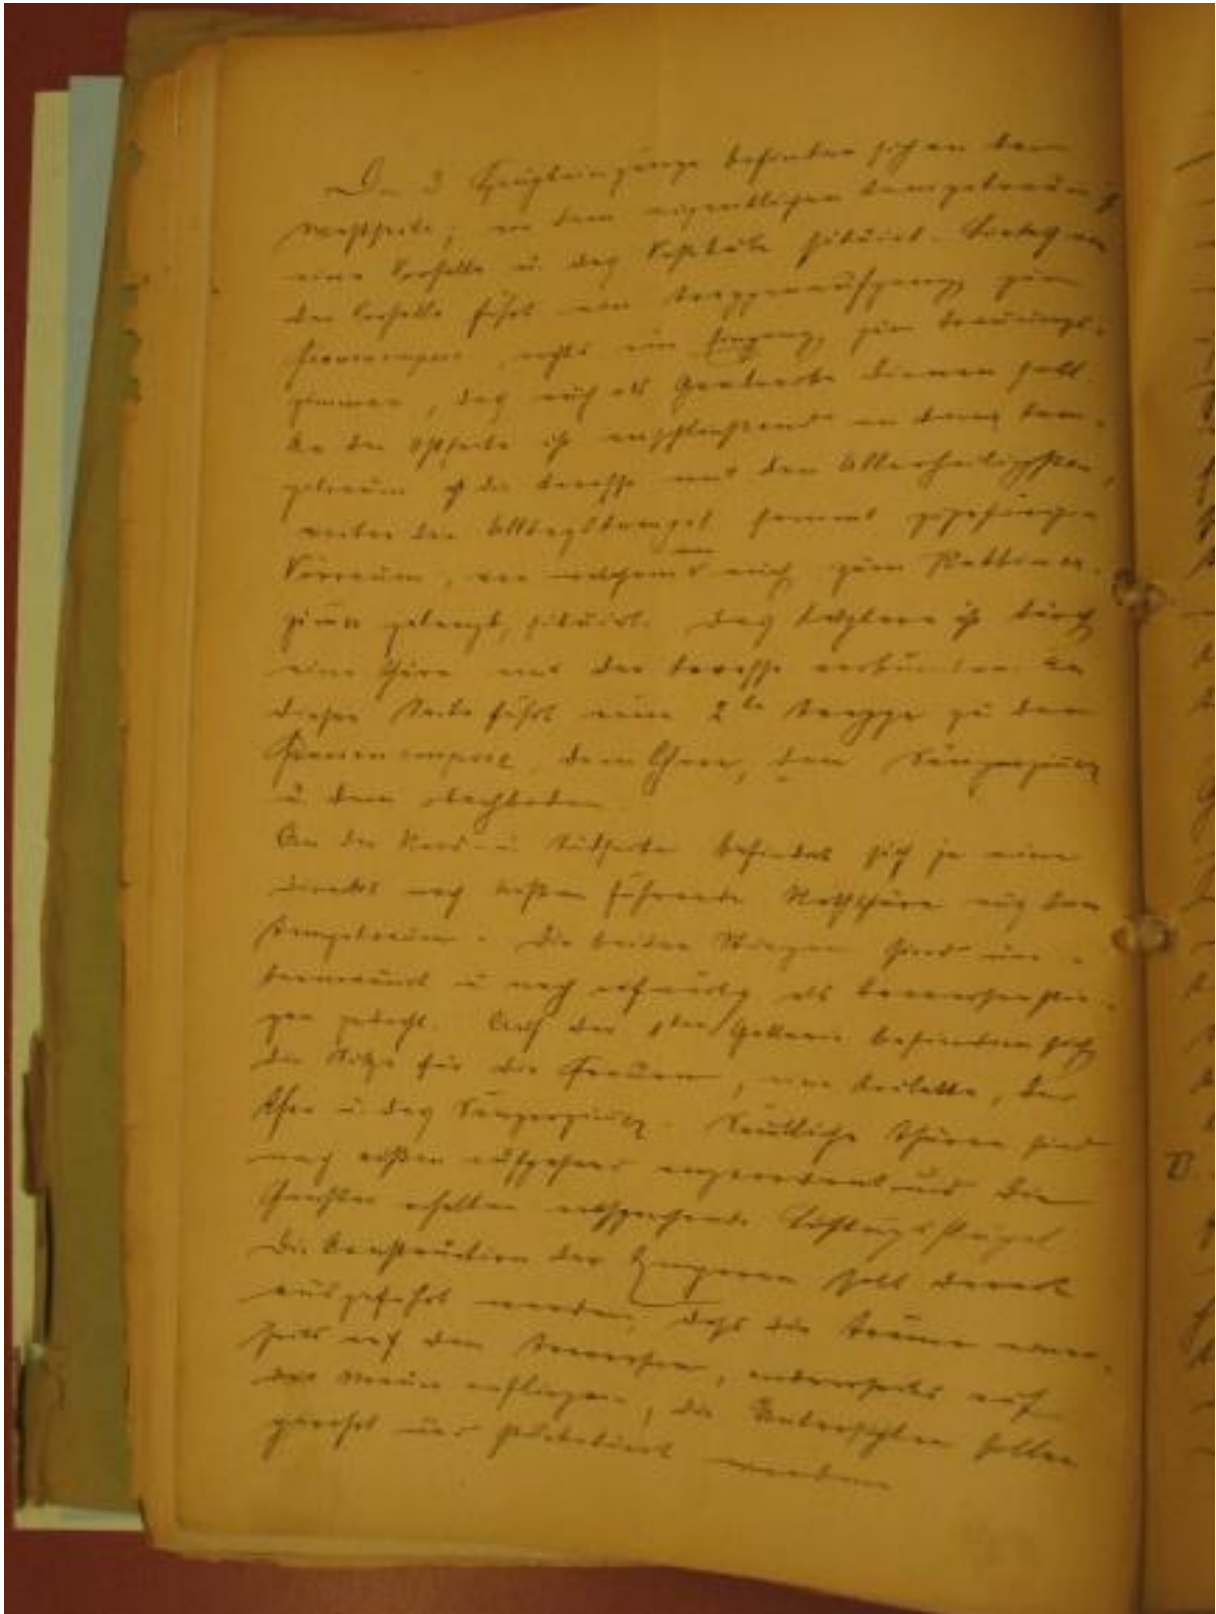 Die 3 Haupteingänge befinden sich an der
Westseite, wo dem eigentlichen Tempelraum
eine Vorhalle u. das Vestibule situirt. Links von
der Vorhalle führt ein Treppenaufgang zur
Frauenempore, rechts ein Eingang zum Trauungs-
zimmer, das auch als Garderobe dienen soll.
An der Ostseite ist anschliessend an den Tem-
pelraum ist die Estrade mit dem Allerheiligsten,
weiter der Alltagstempel sammt zugehörigem
Vorraum, von welchem auch zum
gelangt, situirt. Das letztere ist durch
eine Thüre mit der verbunden. An
dieser Seite führt eine 2te Treppe zu den
Frauenemporen, dem Chore, dem Sängerzimmer
u. dem Dachboden.
An der Nord- u. Südseite befindet sich je eine
direkt nach außen führende Noththüre aus dem
Tempelraum. Die beiden Stiegen sind un-
termauert u. nach aufwärts als Traversenstie-
gen gedacht. Auf der 1ten Gallerie befinden sich
die Sitze für die Frauen, eine Toilette, der
Chor u. das Sängerzimmer. Sämtliche Thüren sind
nach außen aufgehend angeordnet und die
Fenster erhalten entsprechende Lüftungsflügel.
Die Construction der Emporen soll derart
ausgeführt werden, dass die Träme einer-
seits auf den Traversen, anderseits auf
der Mauer aufliegen, die Untersichten sollen
gerohrt und stukatirt werden